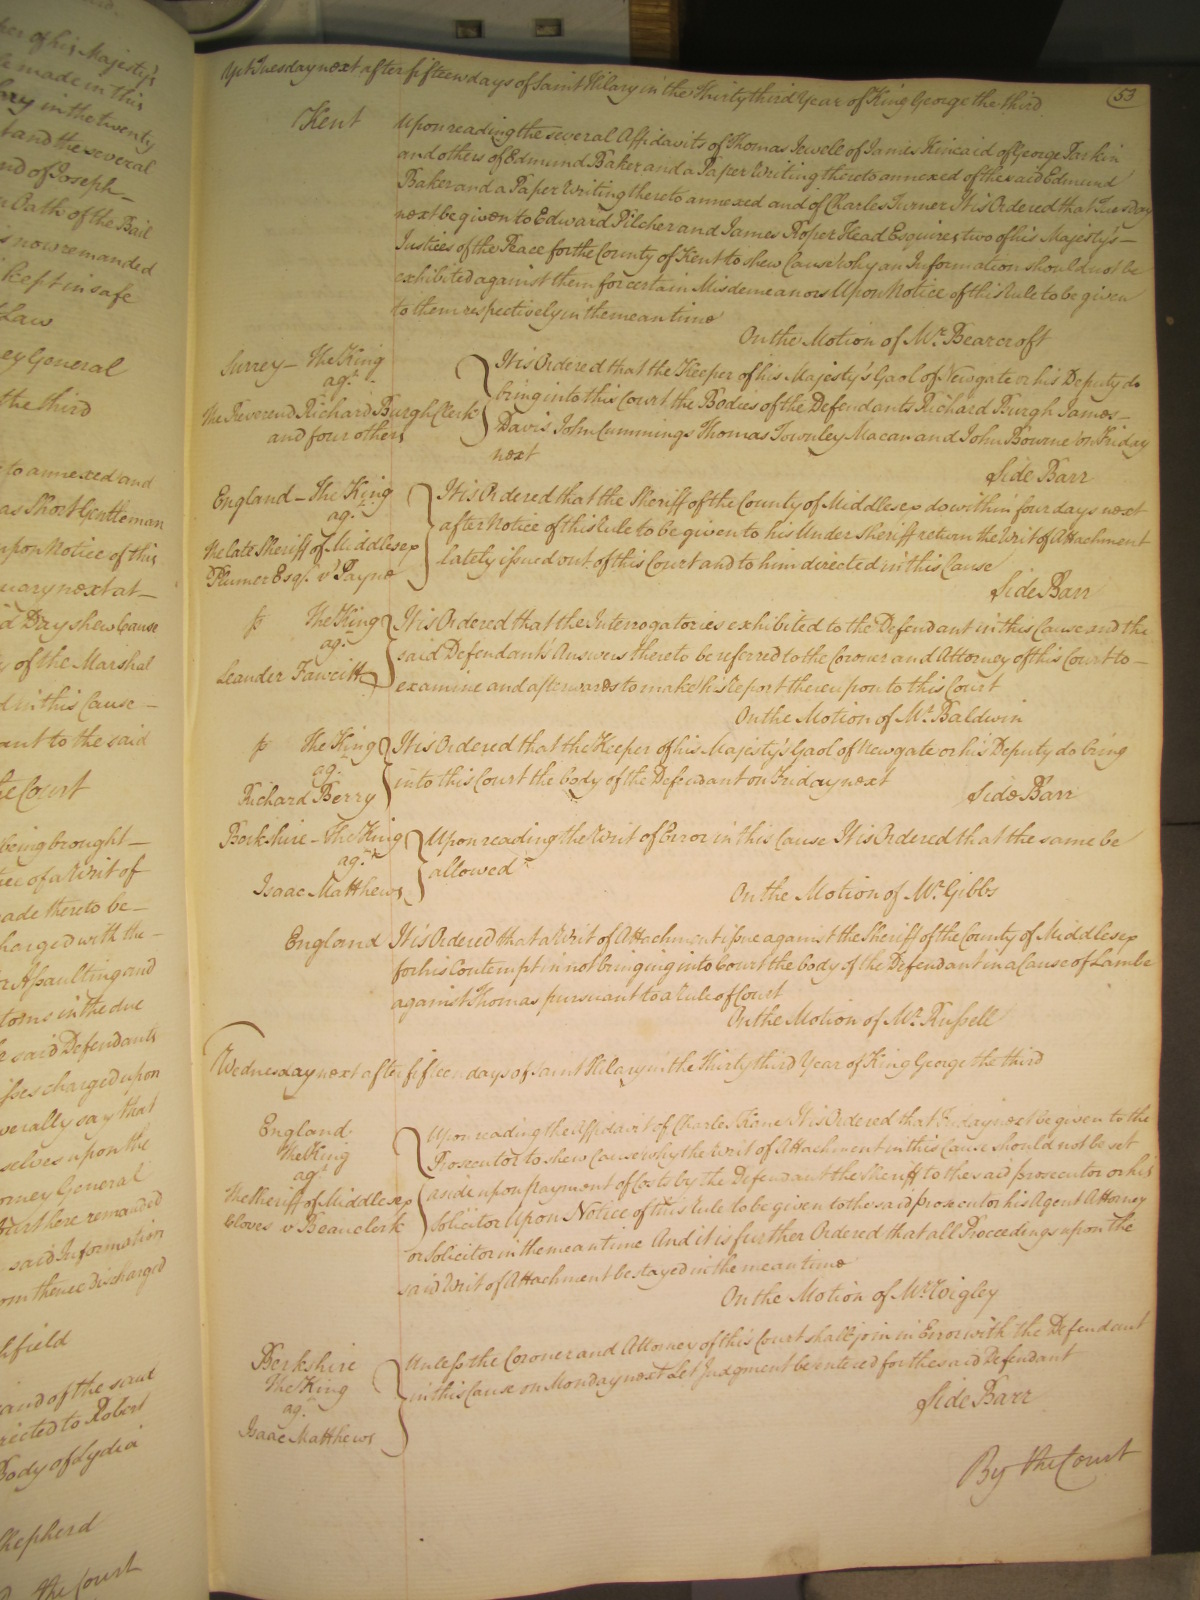 her of his Majesty's
le made in this
ary in the twenty
t and the several
nd of Joseph
Oath of the Bail
is now remanded
kept in safe
Law
ey General
the third
to annexed and
as Short Gentleman
upon Notice of this
uary next at
d Day shew Cause
of the Marshal
d in this Cause
ant to the said
e Court
being brought
ee of a Writ of
ade thereto be
harged with the
r Assaulting and
toms in the due
e said Defendants
isses charged upon
verally say that
selves upon the
orney General
Court here remanded
said Information
om thence Discharged
hfield
and of the same
rected to Robert
Body of Lydia
Shepherd
the Court
Yet Tuesday next after fifteen days of Saint Hilary in the Thirty third Year of King George the third
53
Kent
Upon reading the several Affidavits of Thomas Jewele of James Kincaid of George Larkin
and others of Edmund Baker and a Paper Writing thereto annexed of the said Edmund
Baker and a Paper Writing thereto annexed and of Charles Turner It is Ordered that Tuesday
next be given to Edward Pilcher and James Roper Head Esquires two of his Majesty's
Justices of the Peace for the County of Kent to shew Cause Why an Information should not be
exhibited against them for certain Misdemeanors Upon Notice of this Rule to be given
to them respectively in the mean time
On the Motion of Mr. Bearcroft
Surrey – The King
agt.
The Reverend Richard Burgh Clerk
and four others
It is Ordered that the Keeper of his Majesty's Gaol of Newgate or his Deputy do
bring into this Court the Bodies of the Defendants Richard Burgh James
Davis John Cummings Thomas Townley Macan and John Bourne on Friday
next
Side Barr
England – The King
agt.
The late Sheriff of Middlesex
Plumer Esqr. v Payne
It is Ordered that the Sheriff of the County of Middlesex do within four days next
after Notice of this Rule to be given to his Under Sheriff return the Writ of Attachment
lately issued out of this Court and to him directed in this Cause
Side Barr
The King
agt.
Leander Fawcitt
It is Ordered that the Interrogatories exhibited to the Defendant in this Cause and the
said Defendant's Answers thereto be referred to the Coroner and Attorney of this Court to
examine and afterwards to make his Report thereupon to this Court
On the Motion of Mr. Baldwin
The King
agt.
Richard Berry
It is Ordered that the Keeper of his Majesty's Gaol of Newgate or his Deputy do bring
into this Court the body of the Defendant on Friday next
Side Barr
Berkshire – The King
agt.
Isaac Matthews
Upon reading the Writ of Error in this Cause It is Ordered that the same be
allowed
On the Motion of Mr. Gibbs
England
It is Ordered that a Writ of Attachment issue against the Sheriff of the County of Middlesex
for his Contempt in not bringing into Court the body of the Defendant in a Cause of Lambe
against Thomas pursuant to a Rule of Court
On the Motion of Mr. Russell
Wednesday next after fifteen days of Saint Hilary in the Thirty third Year of King George the third
England
The King
agt.
The Sheriff of Middlesex
Cloves v Beauclerk
Upon reading the Affidavit of Charles Kane It is Ordered that Friday next be given to the
Prosecutor to shew Cause why the Writ of Attachment in this Cause should not be set
aside upon payment of Costs by the Defendant the Sheriff to the said prosecutor or his
Solicitor Upon Notice of this Rule to be given to the said prosecutor his Agent Attorney
or Solicitor in the mean time And it is further Ordered that all Proceedings upon the
said Writ of Attachment be stayed in the mean time
On the Motion of Mr. Wigley
Berkshire
The King
agt.
Isaac Matthews
Unless the Coroner and Attorney of this Court shall join in Error with the Defendant
in this Cause on Monday next Let Judgment be entered for the said Defendant
Side Barr
By the Court